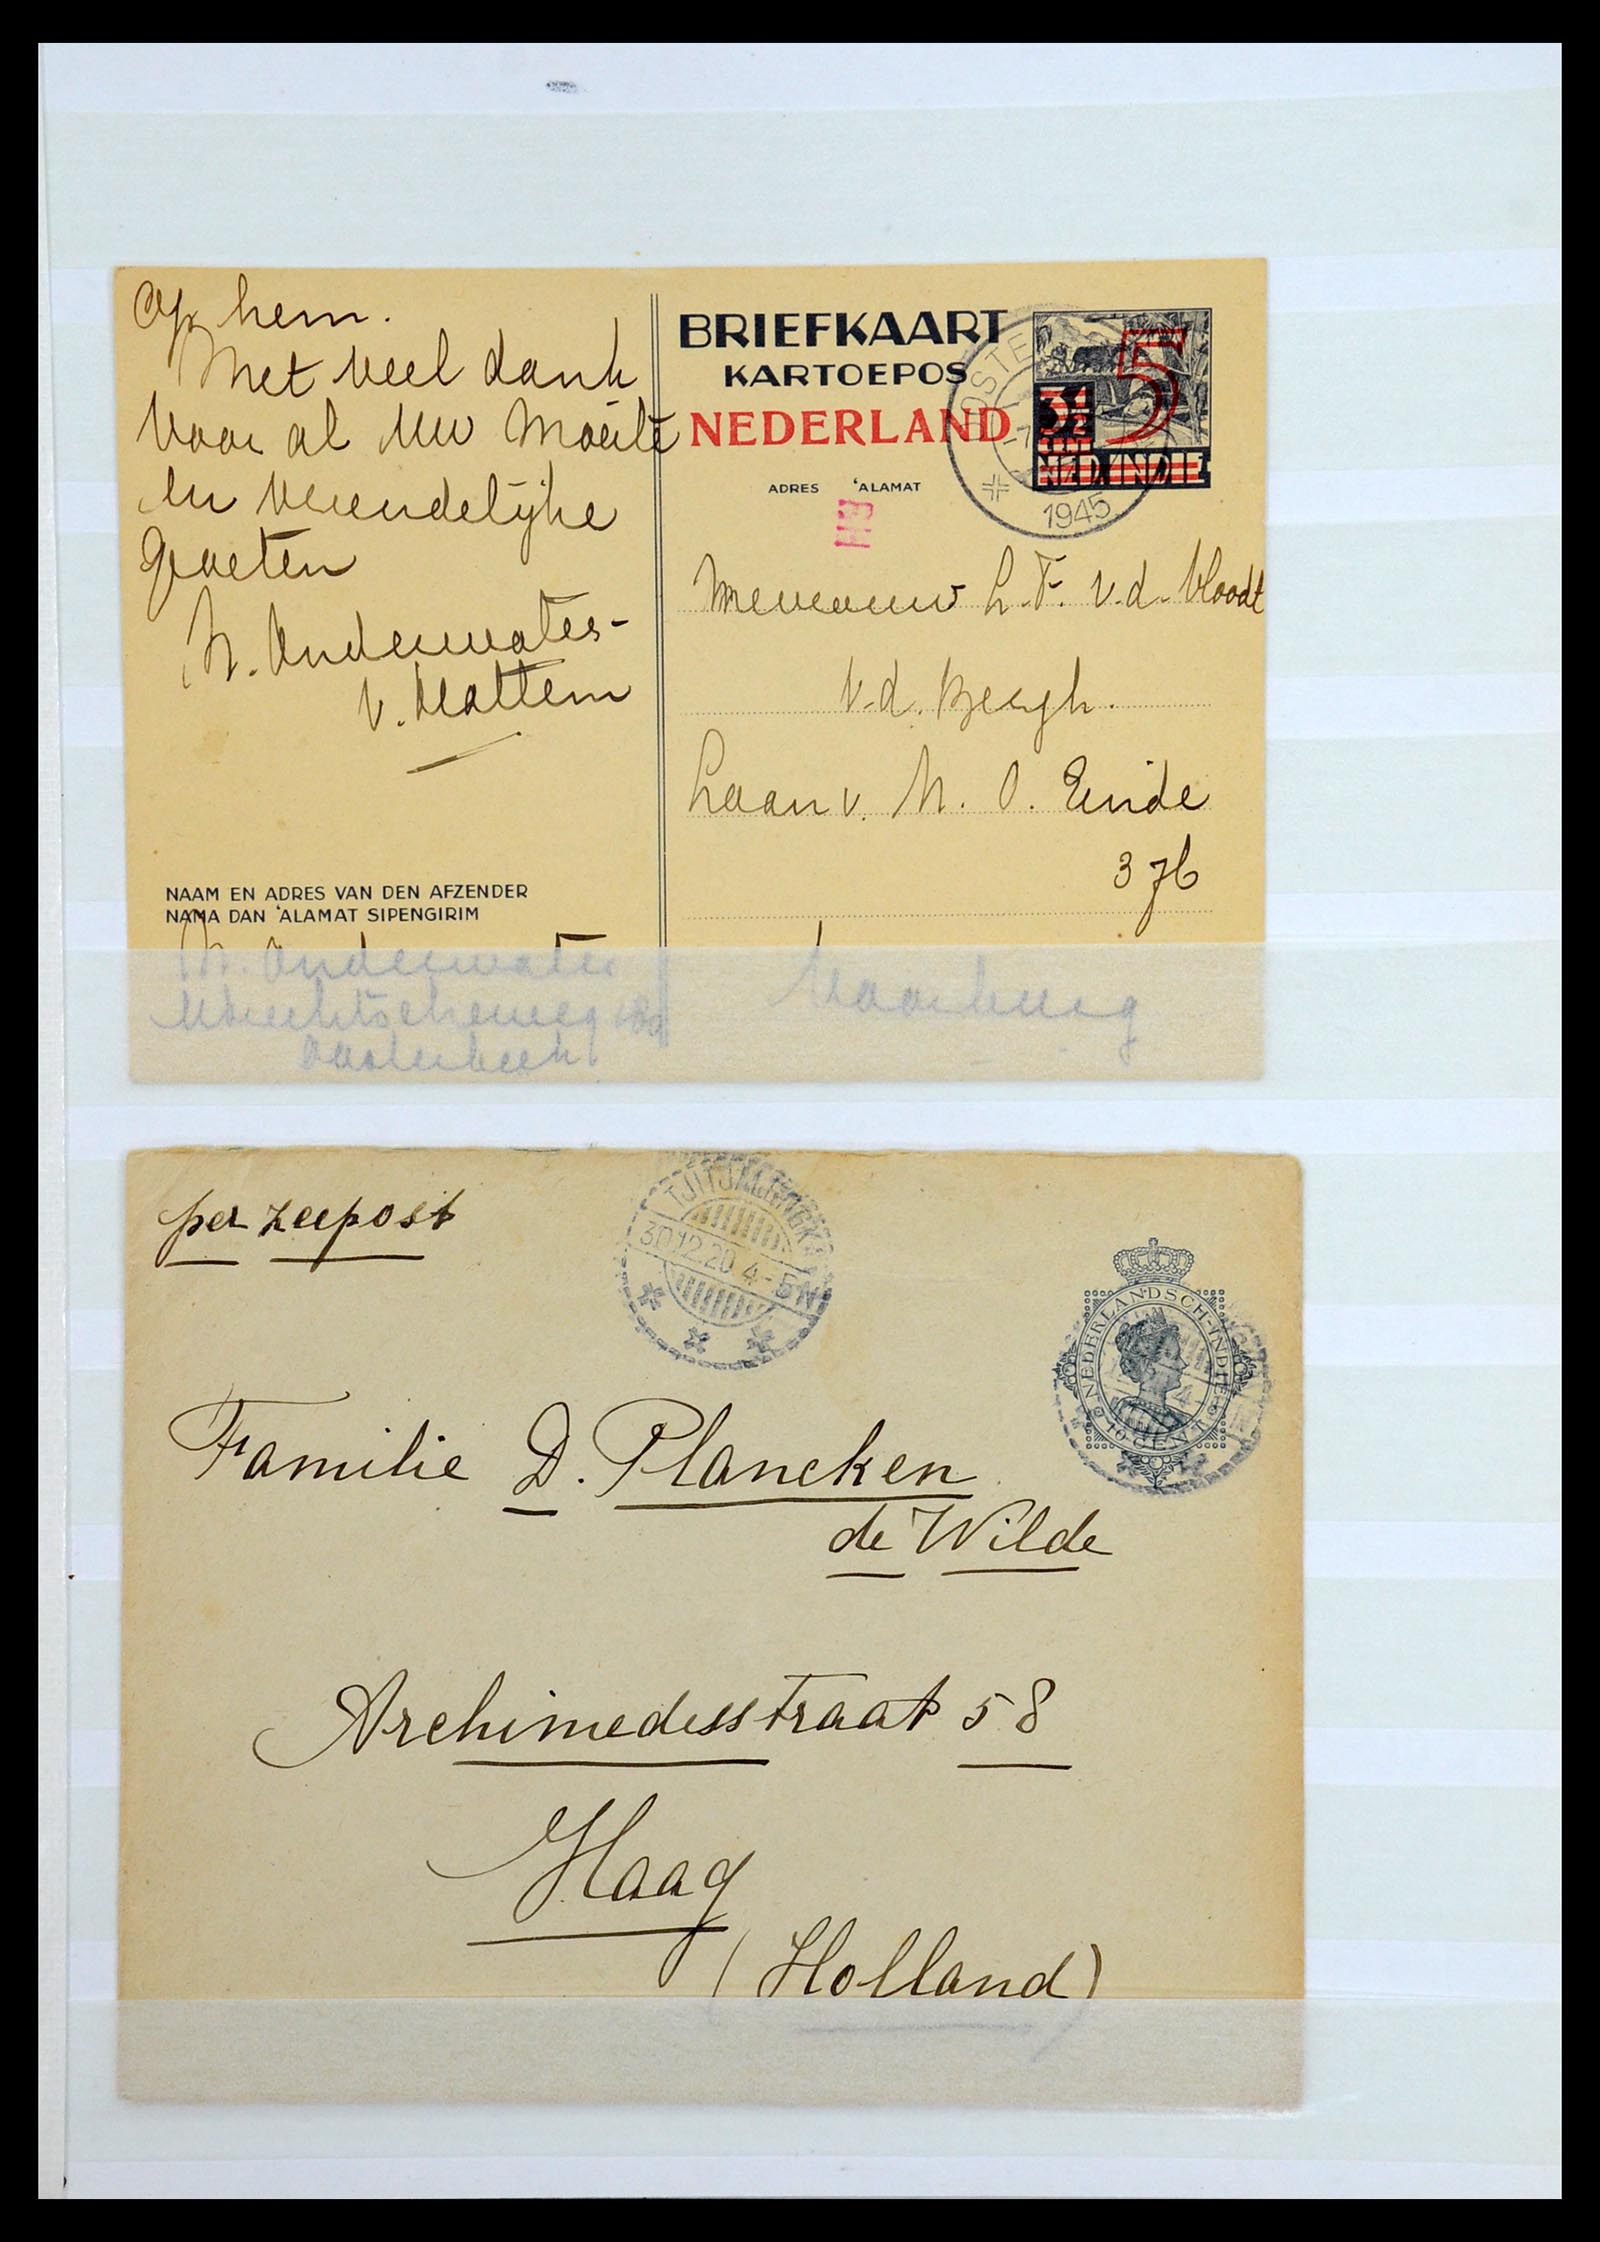 Op hem.
Met veel dank
voor al Uw moeite
en vriendelijke
groeten
N. Onderwater-
v. Hattem
NAAM EN ADRES VAN DEN AFZENDER
NAMA DAN 'ALAMAT SIPENGIRIM
N. Onderwater
Utrechtscheweg
Oosterbeek
BRIEFKAART
KARTOEPOS
NEDERLAND
5
3½
CENT
NED. INDIE
OOSTE
1945
ADRES 'ALAMAT
H3
Mevrouw L. F. v.d. Vloodt
v.d. Bergh.
Laan v. N. O. Einde
376
Voorburg
per zeepost
TJITJALENGKA
30.12.20 4-5N
NEDERLANDSCH-INDIE
10 CENT
Familie D. Plancken
de Wilde
Archimedesstraat 58
Haag
(Holland)